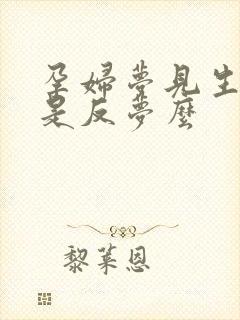 孕婦夢見生
是反夢麼
黎萊恩